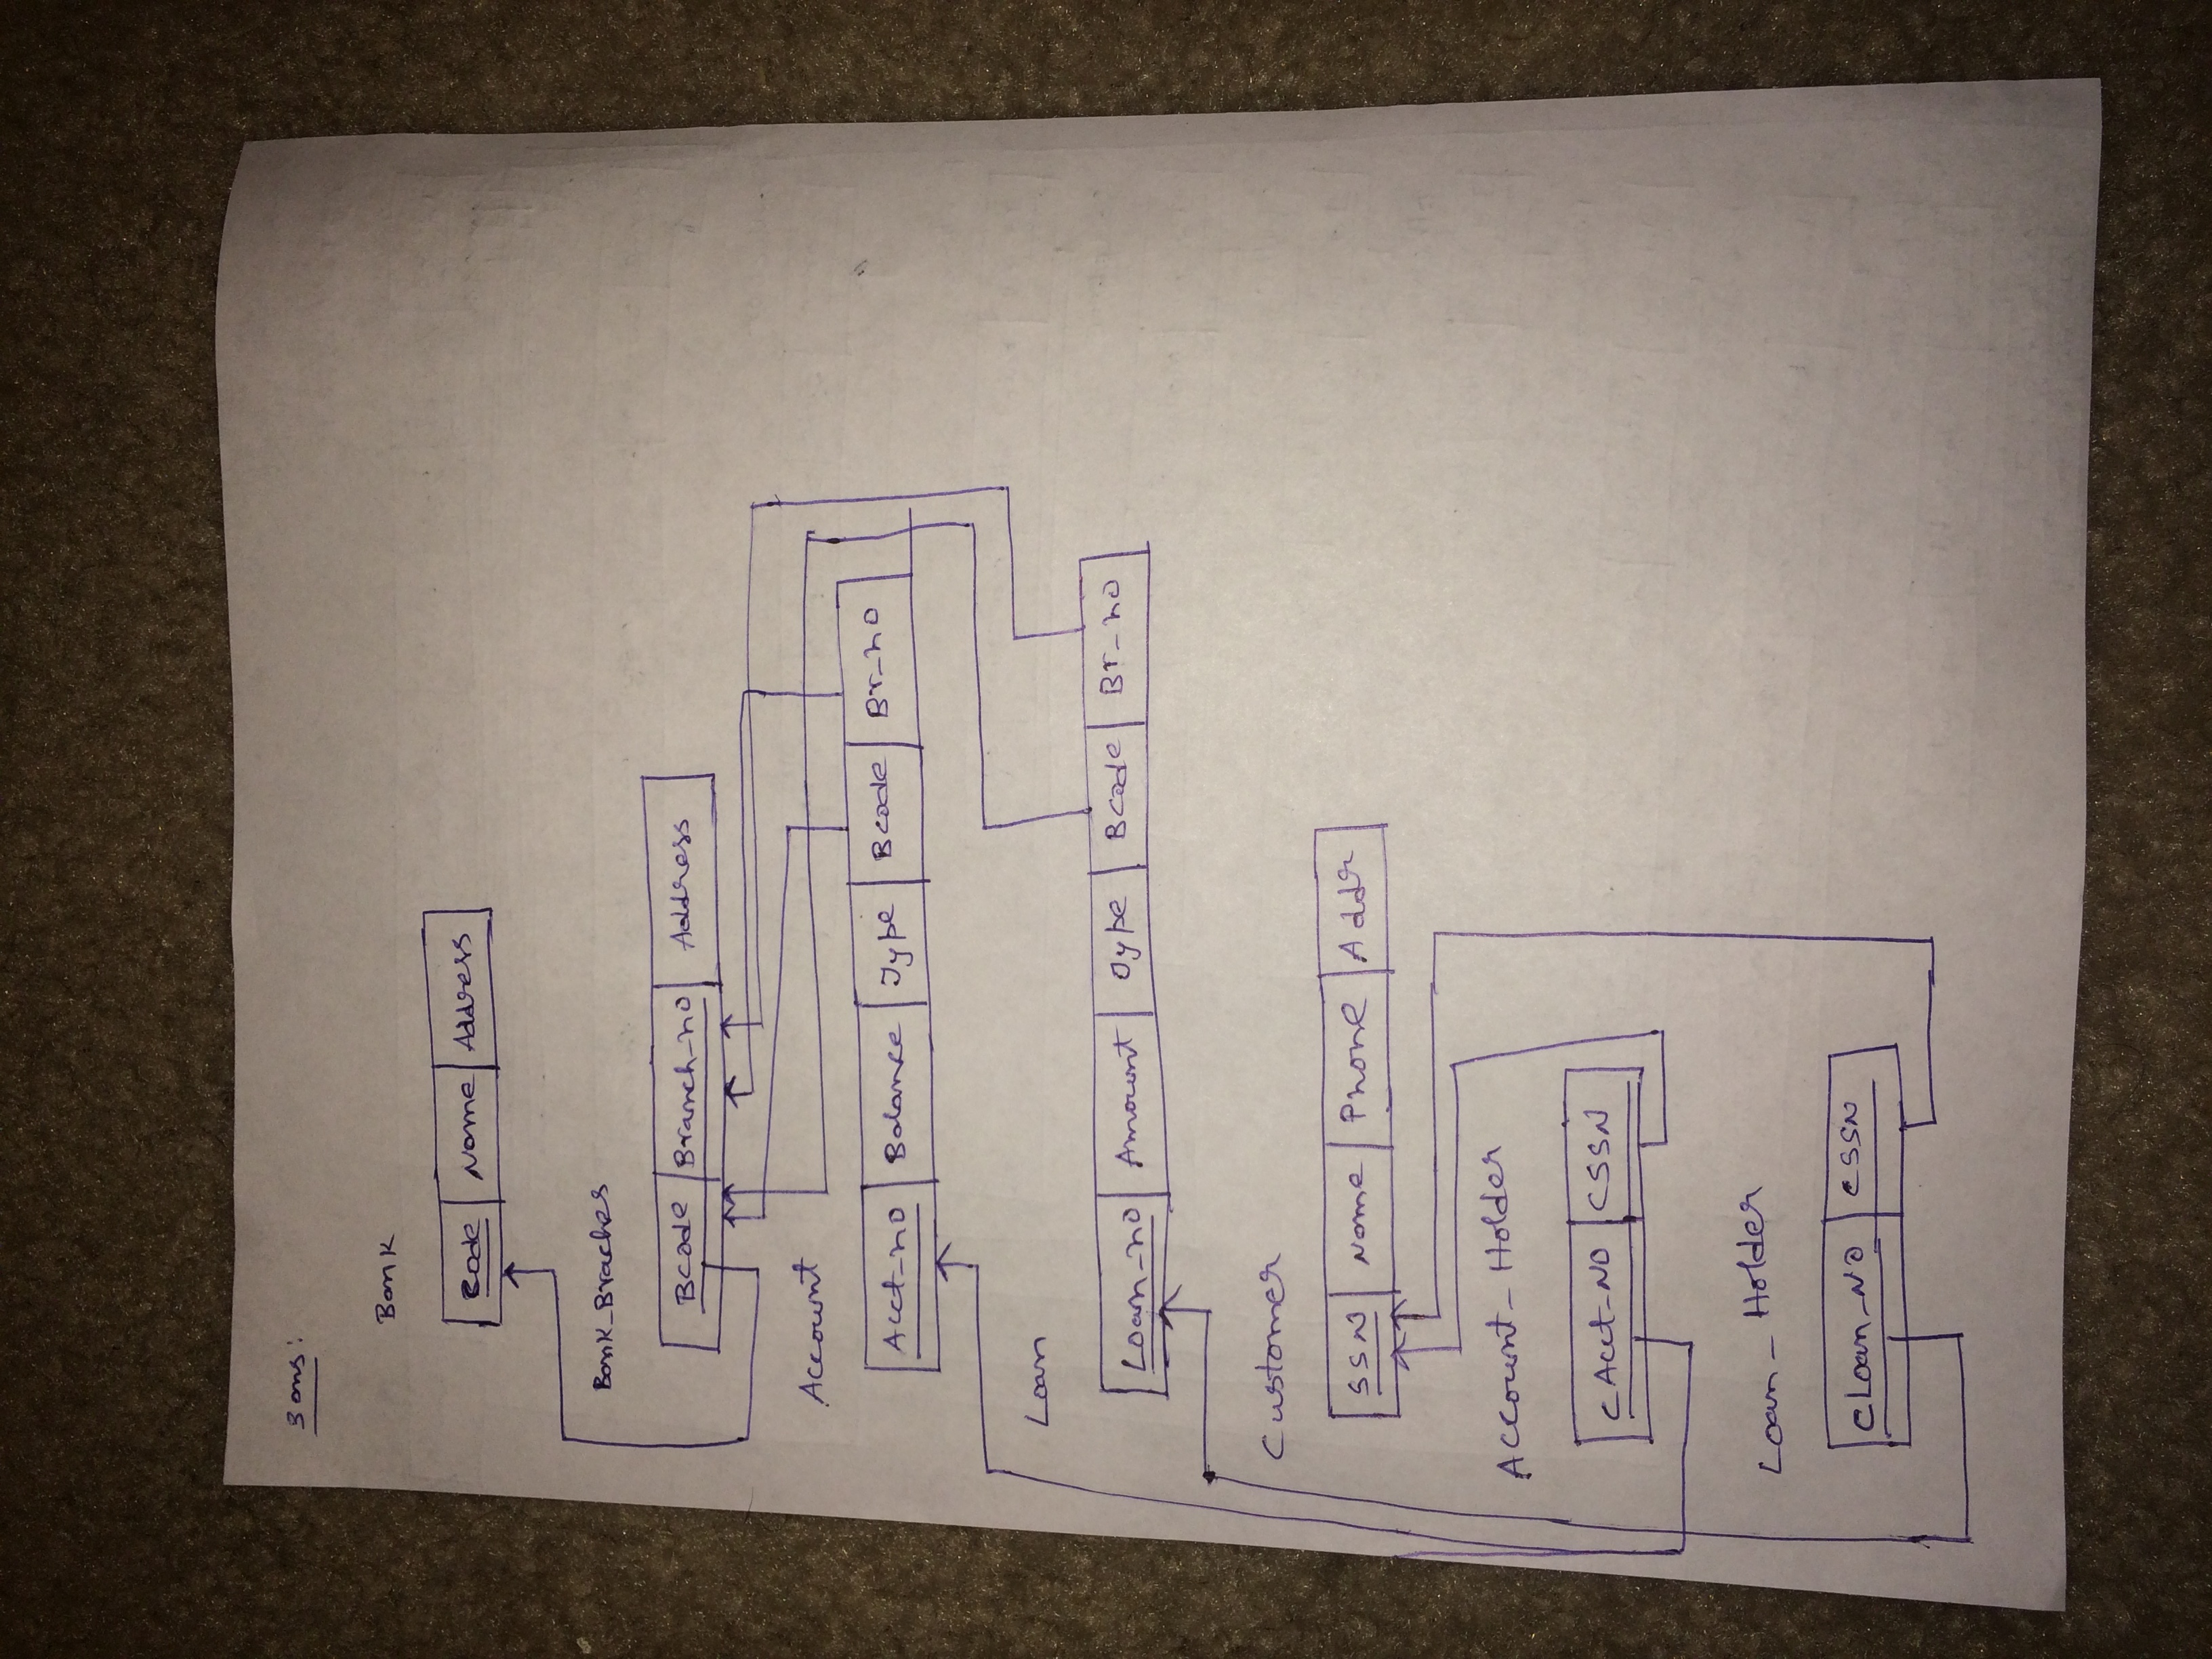 3 ans:
Bank
Code Name Address
Bank_Braches
Bcode Branch_no Address
Account
Acct_no Balance Type Bcode Br_no
Loan
Loan_no Amount Type Bcode Br_no
Customer
SSN Name Phone Addr
Account_Holder
CAcct_NO CSSN
Loan_Holder
CLoan_NO CSSN